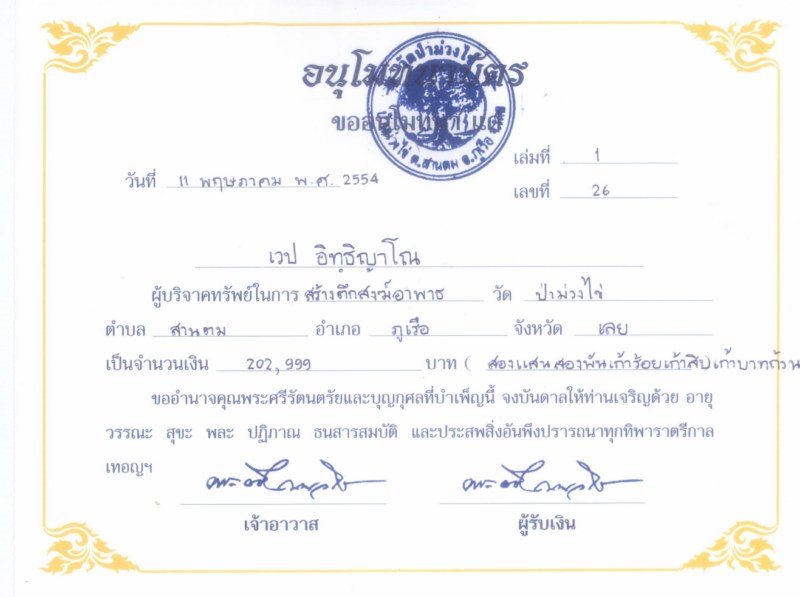 อนุโมทนาบัตร
ขออนุโมทนาแด่
วัดป่าม่วงไข่
ต.สานตม อ.ภูเรือ
เล่มที่ 1
วันที่ 11 พฤษภาคม พ.ศ. 2554
เลขที่ 26
เวป อิทฺธิญาโณ
ผู้บริจาคทรัพย์ในการ สร้างตึกสงฆ์อาพาธ วัด ป่าม่วงไข่
ตำบล สานตม อำเภอ ภูเรือ จังหวัด เลย
เป็นจำนวนเงิน 202,999 บาท ( สองแสนสองพันเก้าร้อยเก้าสิบเก้าบาทถ้วน
ขออำนาจคุณพระศรีรัตนตรัยและบุญกุศลที่บำเพ็ญนี้ จงบันดาลให้ท่านเจริญด้วย อายุ
วรรณะ สุขะ พละ ปฏิภาณ ธนสารสมบัติ และประสพสิ่งอันพึงปรารถนาทุกทิพาราตรีกาล
เทอญฯ
เจ้าอาวาส ผู้รับเงิน